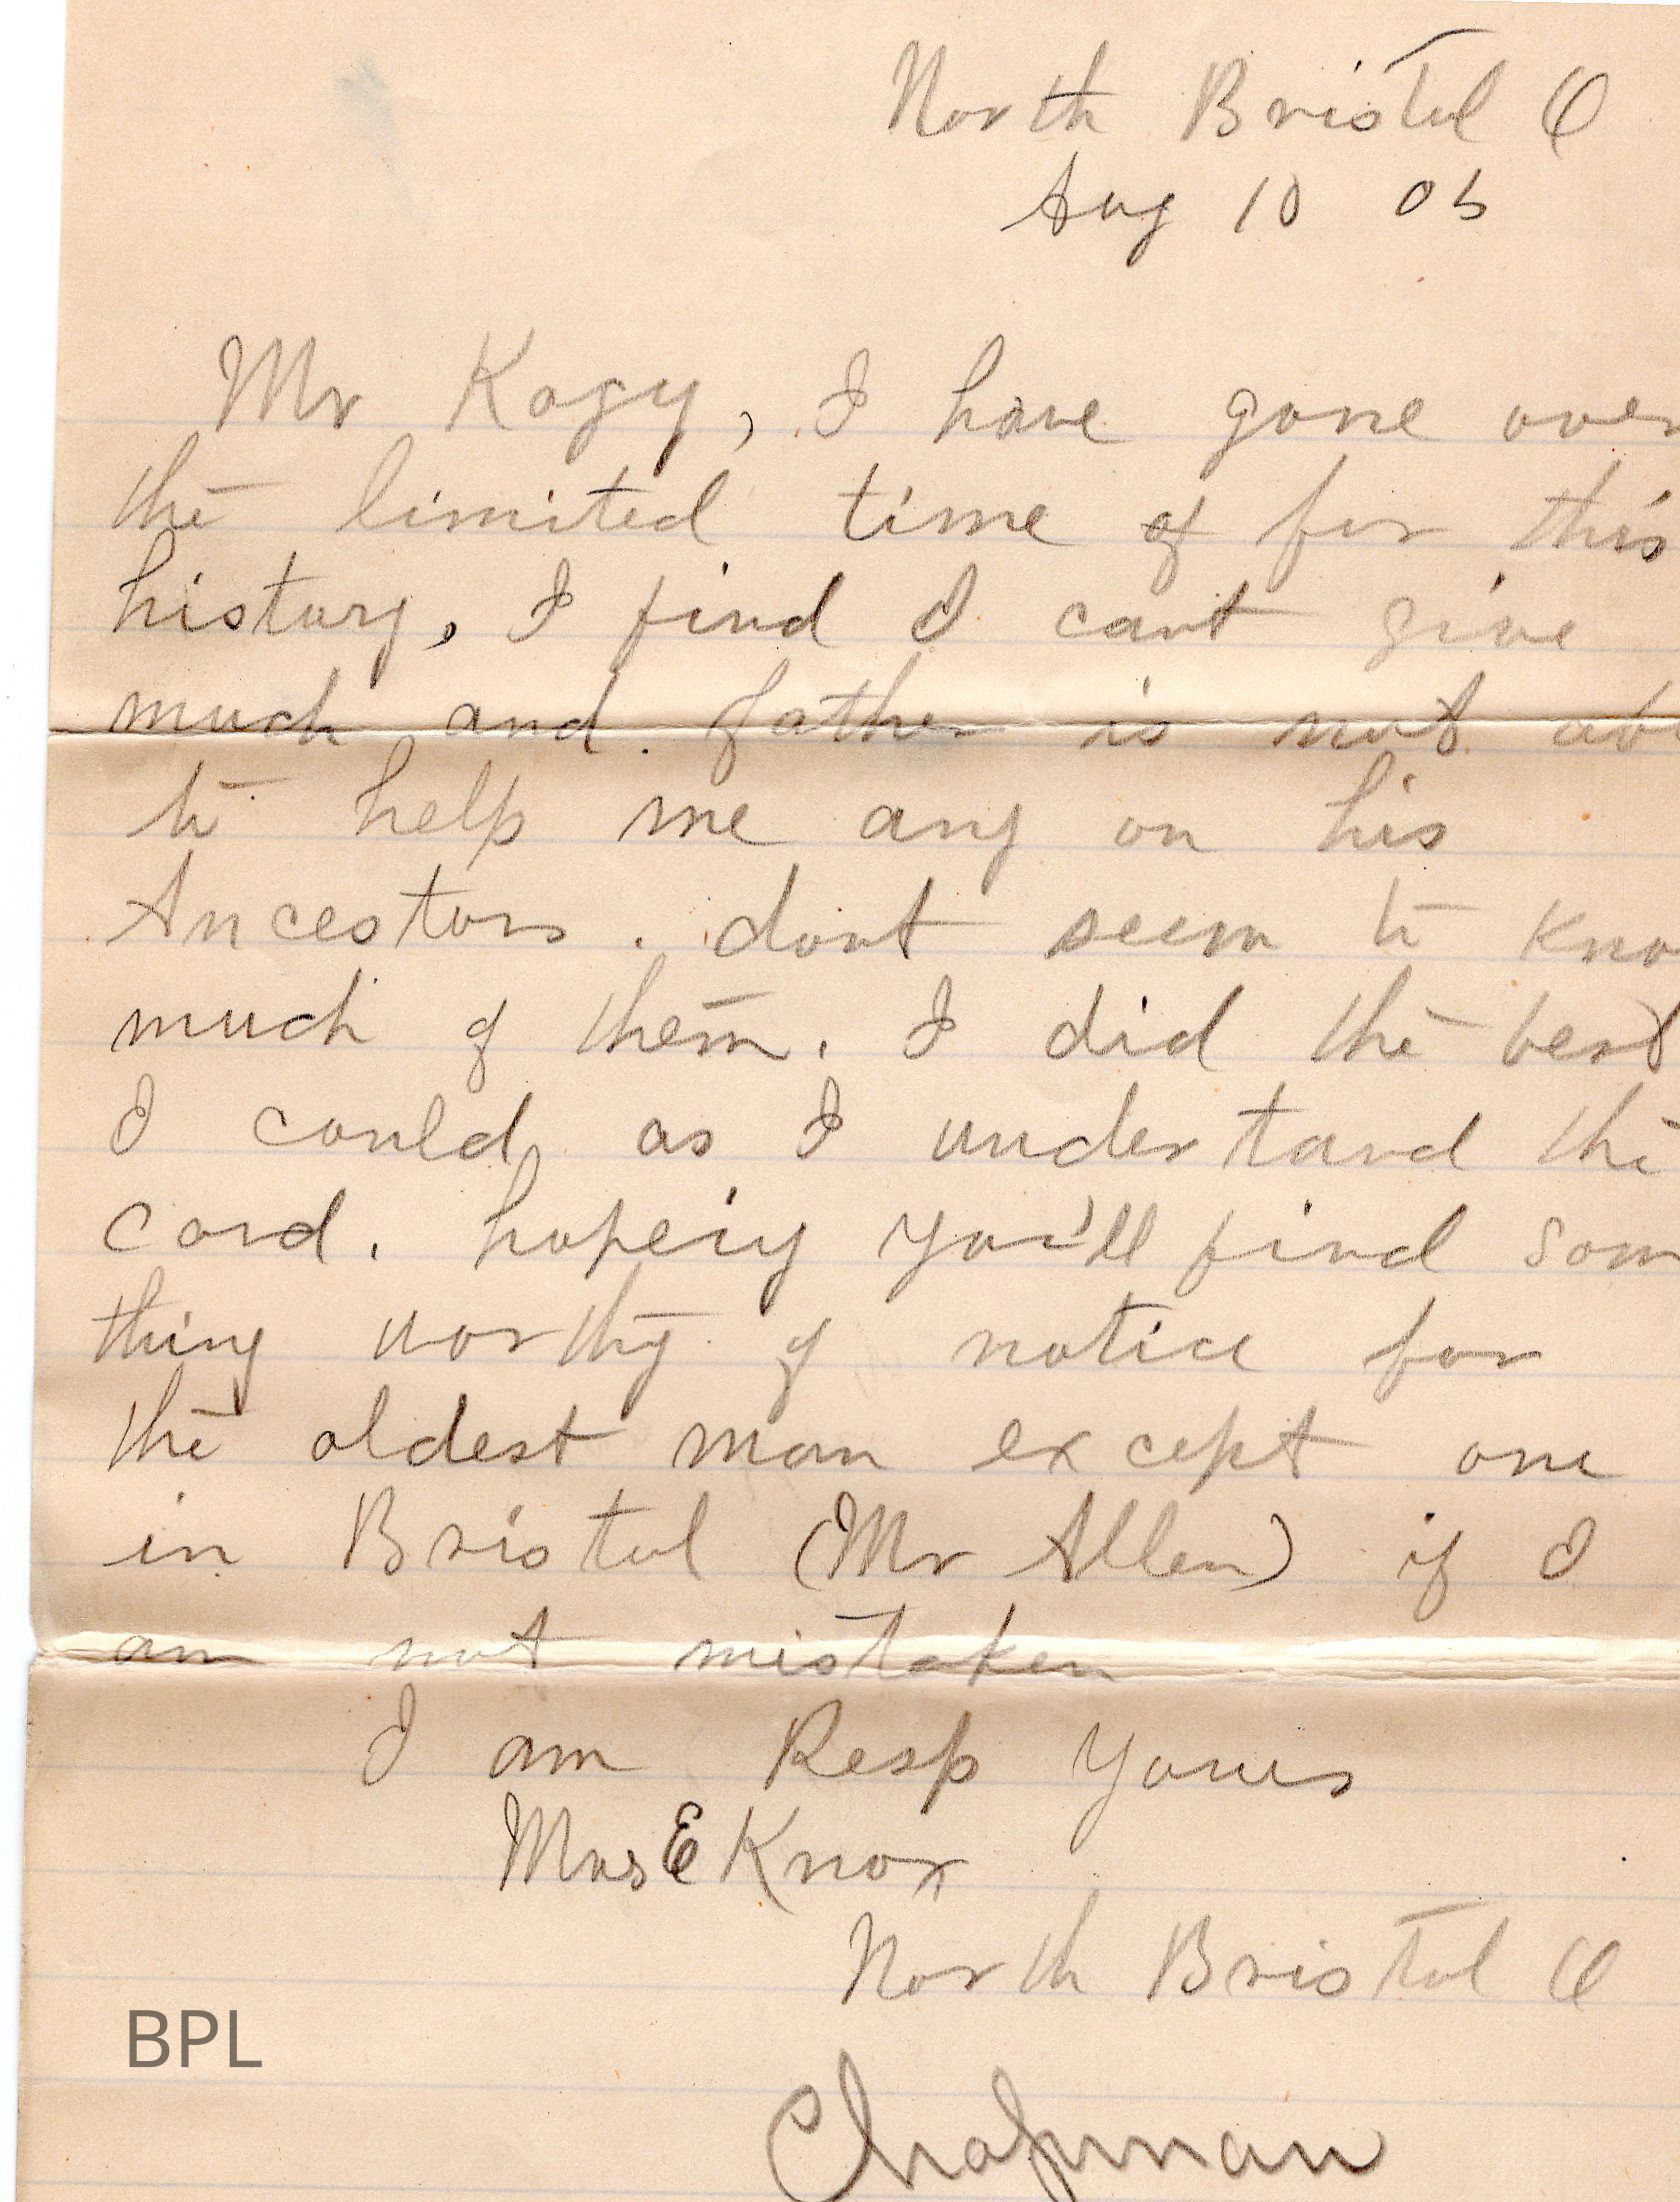 North Bristol O
Aug 10 05
Mr Kagy, I have gone over
the limited time of for this
history, I find I cant give
much and father is not ab
to help me any on his
Ancestors. dont seem to kno
much of them. I did the best
I could as I undertand the
card. hopeiy you'll find som
thing worthy of notice for
the oldest man except one
in Bristol (Mr Allen) if I
am not mistaken
I am Resp Yours
Mrs E Knox
North Bristol O
BPL
Chapman